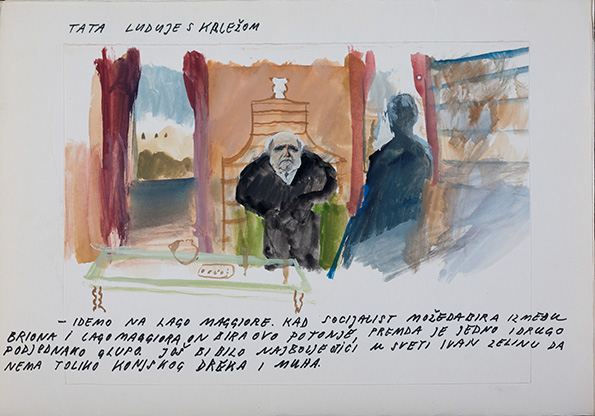 TATA LUDUJE S KRLEŽOM
– IDEMO NA LAGO MAGGIORE. KAD SOCIJALIST MOŽE DA BIRA IZMEĐU
BRIONA I LAGO MAGGIORA, ON BIRA OVO POTONJE, PREMDA JE JEDNO I DRUGO
PODJEDNAKO GLUPO. JOŠ BI BILO NAJBOLJE OTIĆI U SVETI IVAN ZELINU DA
NEMA TOLIKO KONJSKOG DREKA I MUHA.